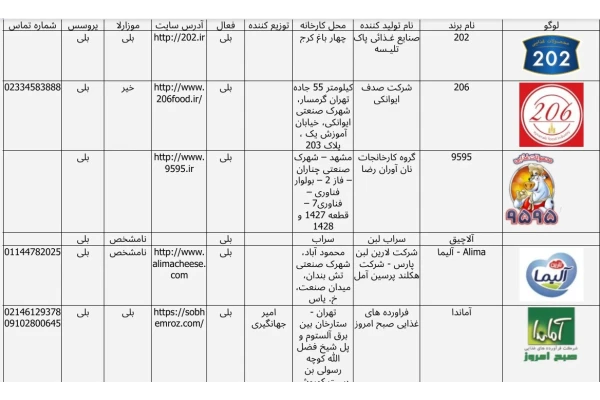 لوگو
نام برند
نام تولید کننده
محل کارخانه
توزیع کننده
فعال
آدرس سایت
موزارلا
پروسس
شماره تماس
202
202
صنایع غذائی پاک
تلیسه
چهار باغ کرج
بلی
http://202.ir
بلی
بلی
206
206
شرکت صدف
ایوانکی
کیلومتر 55 جاده
تهران گرمسار،
شهرک صنعتی
ایوانکی، خیابان
آموزش یک ،
پلاک 203
بلی
http://www.
206food.ir/
خیر
بلی
02334583888
۹۵۹۵
9595
گروه کارخانجات
نان آوران رضا
مشهد – شهرک
صنعتی چناران
– فاز 2 – بولوار
فناوری –
فناوری7 –
قطعه 1427 و
1428
بلی
http://www.
9595.ir
بلی
آلاچیق
سراب لبن
سراب
بلی
نامشخص
بلی
آلیما
Alima - آلیما
شرکت لارین لبن
پارس - شرکت
هکلند پرسین آمل
محمود آباد،
شهرک صنعتی
تش بندان،
میدان صنعت،
خ. یاس
بلی
http://www.
alimacheese.
com
نامشخص
بلی
01144782025
آماندا
شرکت فرآورده های غذایی
صبح امروز
آماندا
فراورده های
غذایی صبح امروز
تهران -
ستارخان بین
برق آلستوم و
پل شیخ فضل
الله کوچه
رسولی بن
امیر
جهانگیری
بلی
https://sobh
emroz.com/
بلی
بلی
02146129378
09102800645